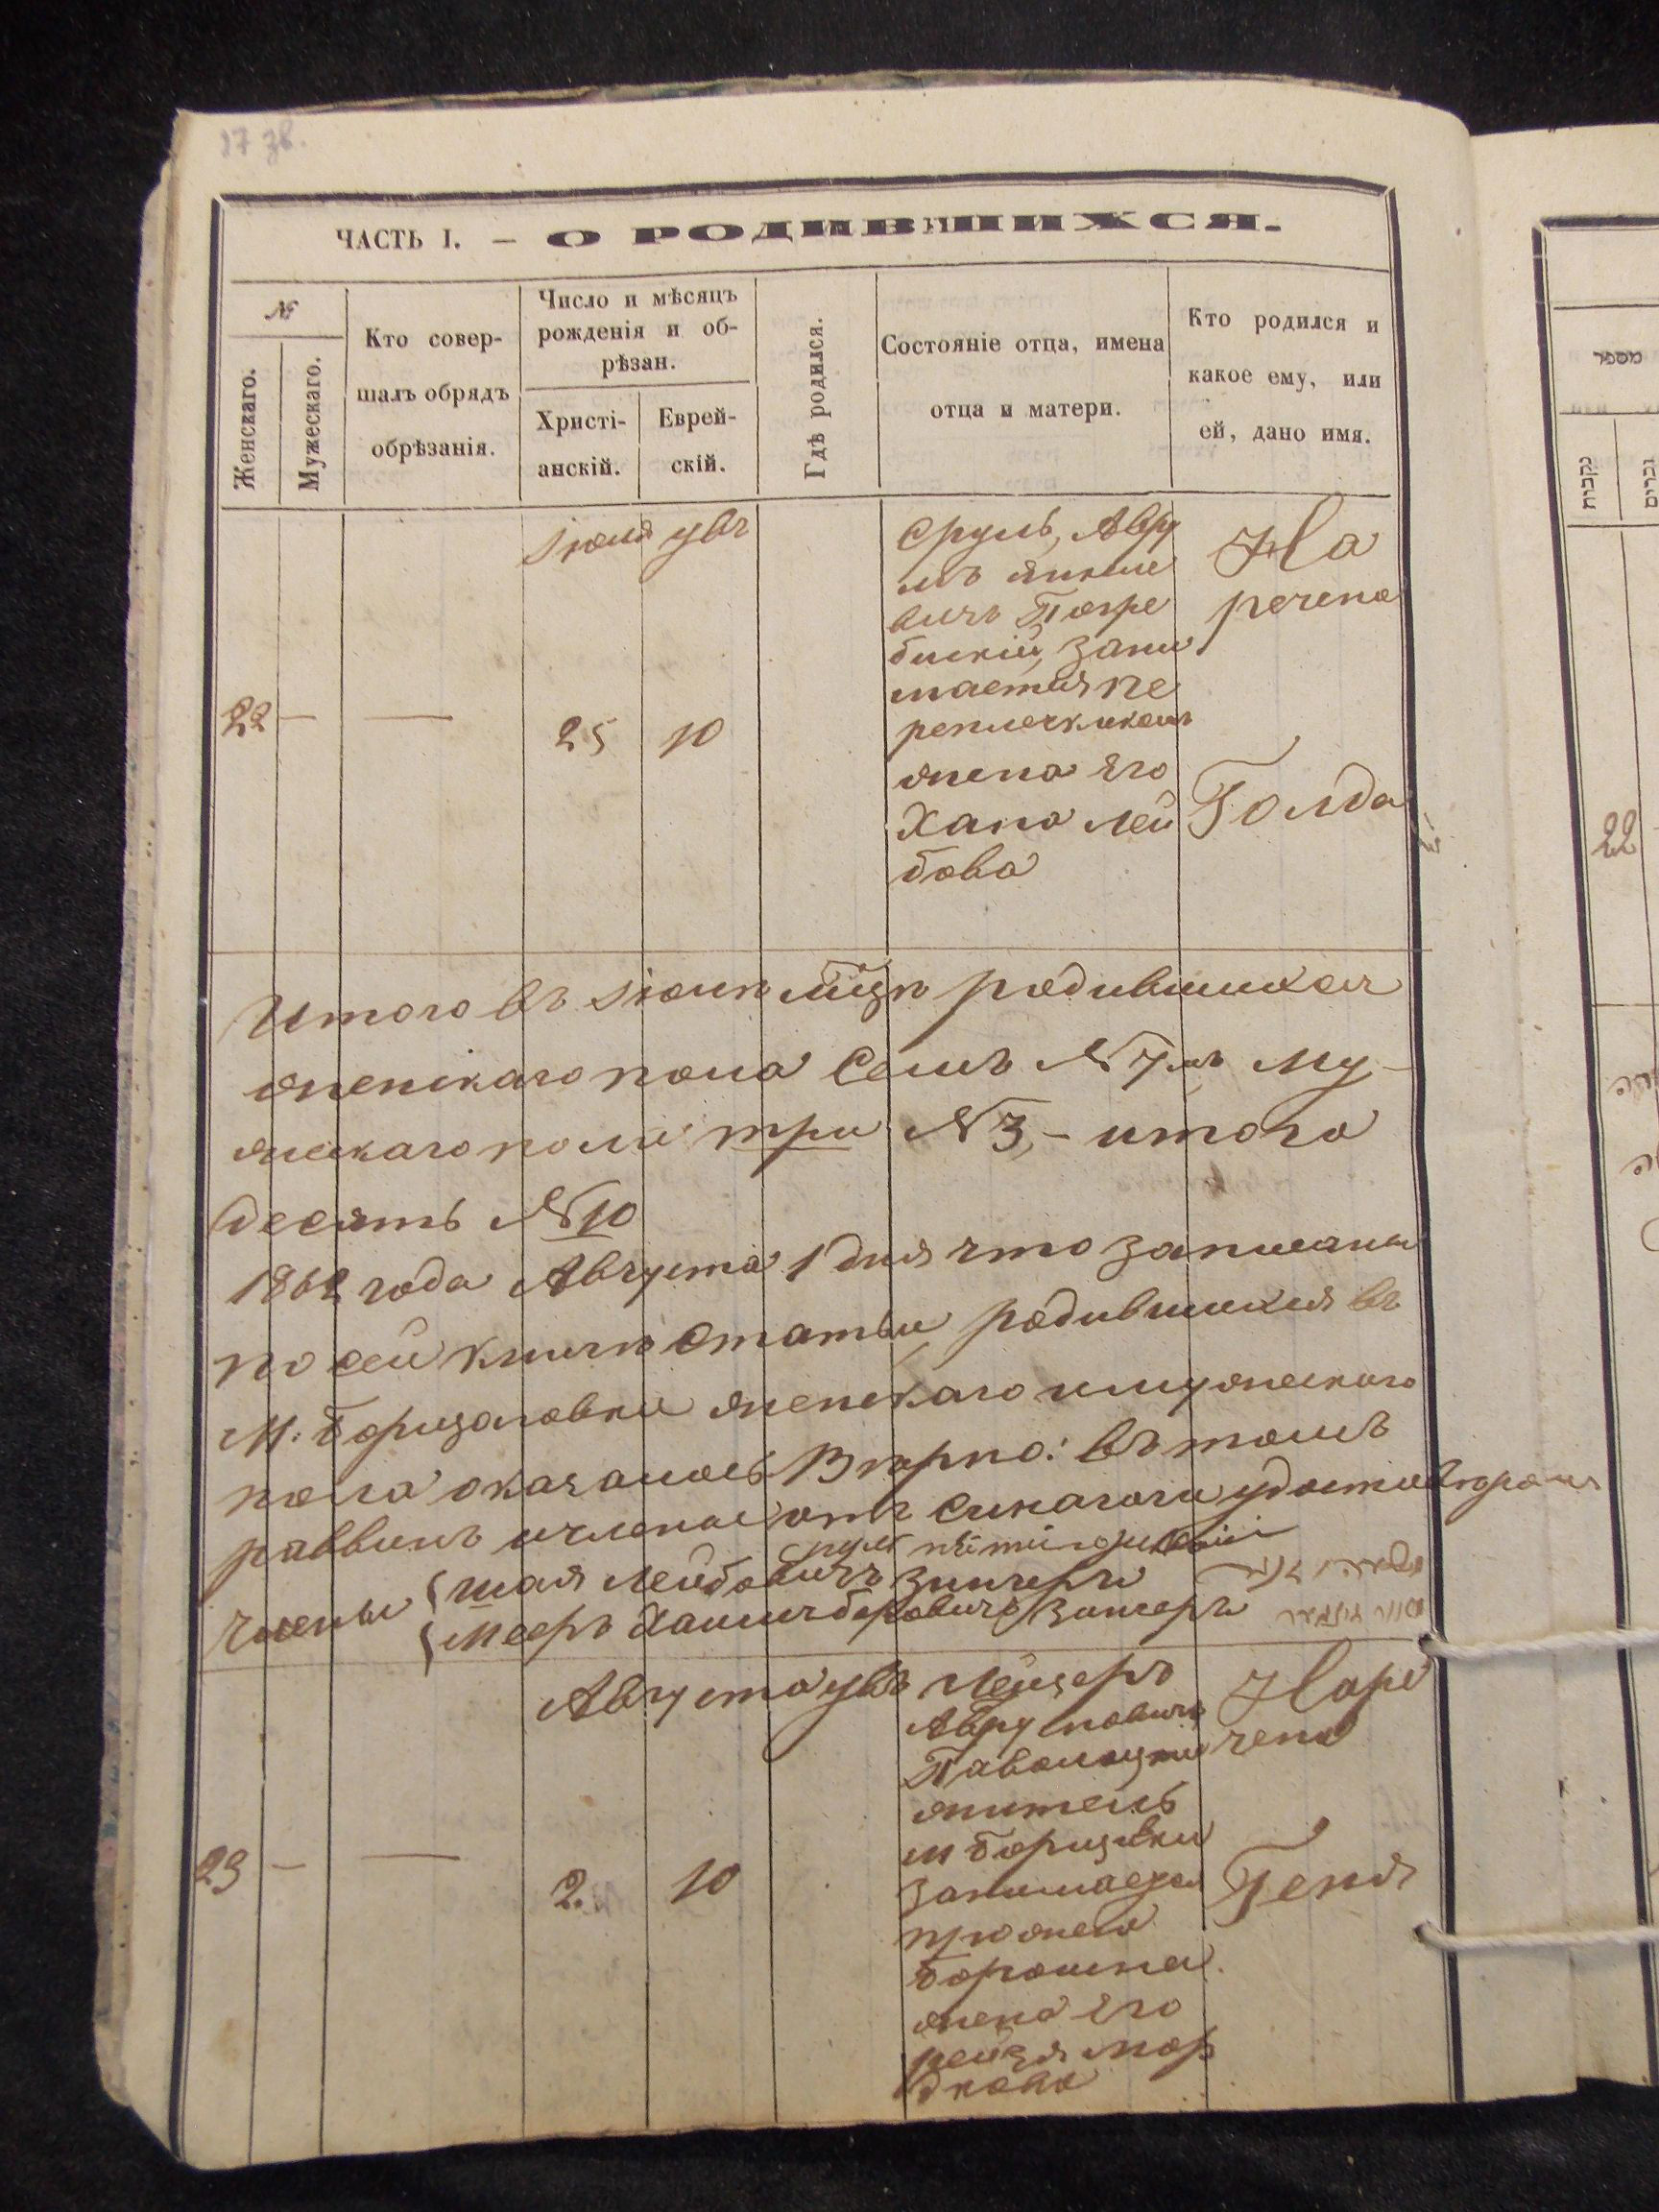 17 зв.
ЧАСТЬ I. — О РОДИВШИХСЯ.
№
Женскаго.
Мужескаго.
Кто совер-
шалъ обрядъ
обрѣзанія.
Число и мѣсяцъ
рожденія и об-
рѣзан.
Христі-
анскій.
Еврей-
скій.
Гдѣ родился.
Состояніе отца, имена
отца и матери.
Кто родился и
какое ему, или
ей, дано имя.
Іюля увъ
22 — — 25 10
Сруль, Авру
мъ
вичъ Погре
бискій, зани
мается пе
жена Его
Хана Лей
бова
На
речена
Голда
Итого въ Іюлѣ мцѣ родившихся
женскаго пола Семъ № 7мъ му-
жескаго пола три № 3, — итого
десять № 10
1862 года Августа 1 дня что записаны
по сей книгѣ Статьи родившихся въ
М: Борщаговки женскаго и мужескаго
пола оказалось Вѣрно: въ томъ
раввинъ и члены отъ синагоги удостовѣряемъ
Члены
Шая Лейбовичъ Зингеръ
Мееръ Зингеръ
Августа увъ
23 — — 2. 10
Лейзеръ
Авру мовичъ
Паволоцки
житель
м Борщевки
занимается
продажею
борошна
жена Его
Рейзя Мор
дкова
Наре
чена
Геня
מספר
נקבות
זכרים
22